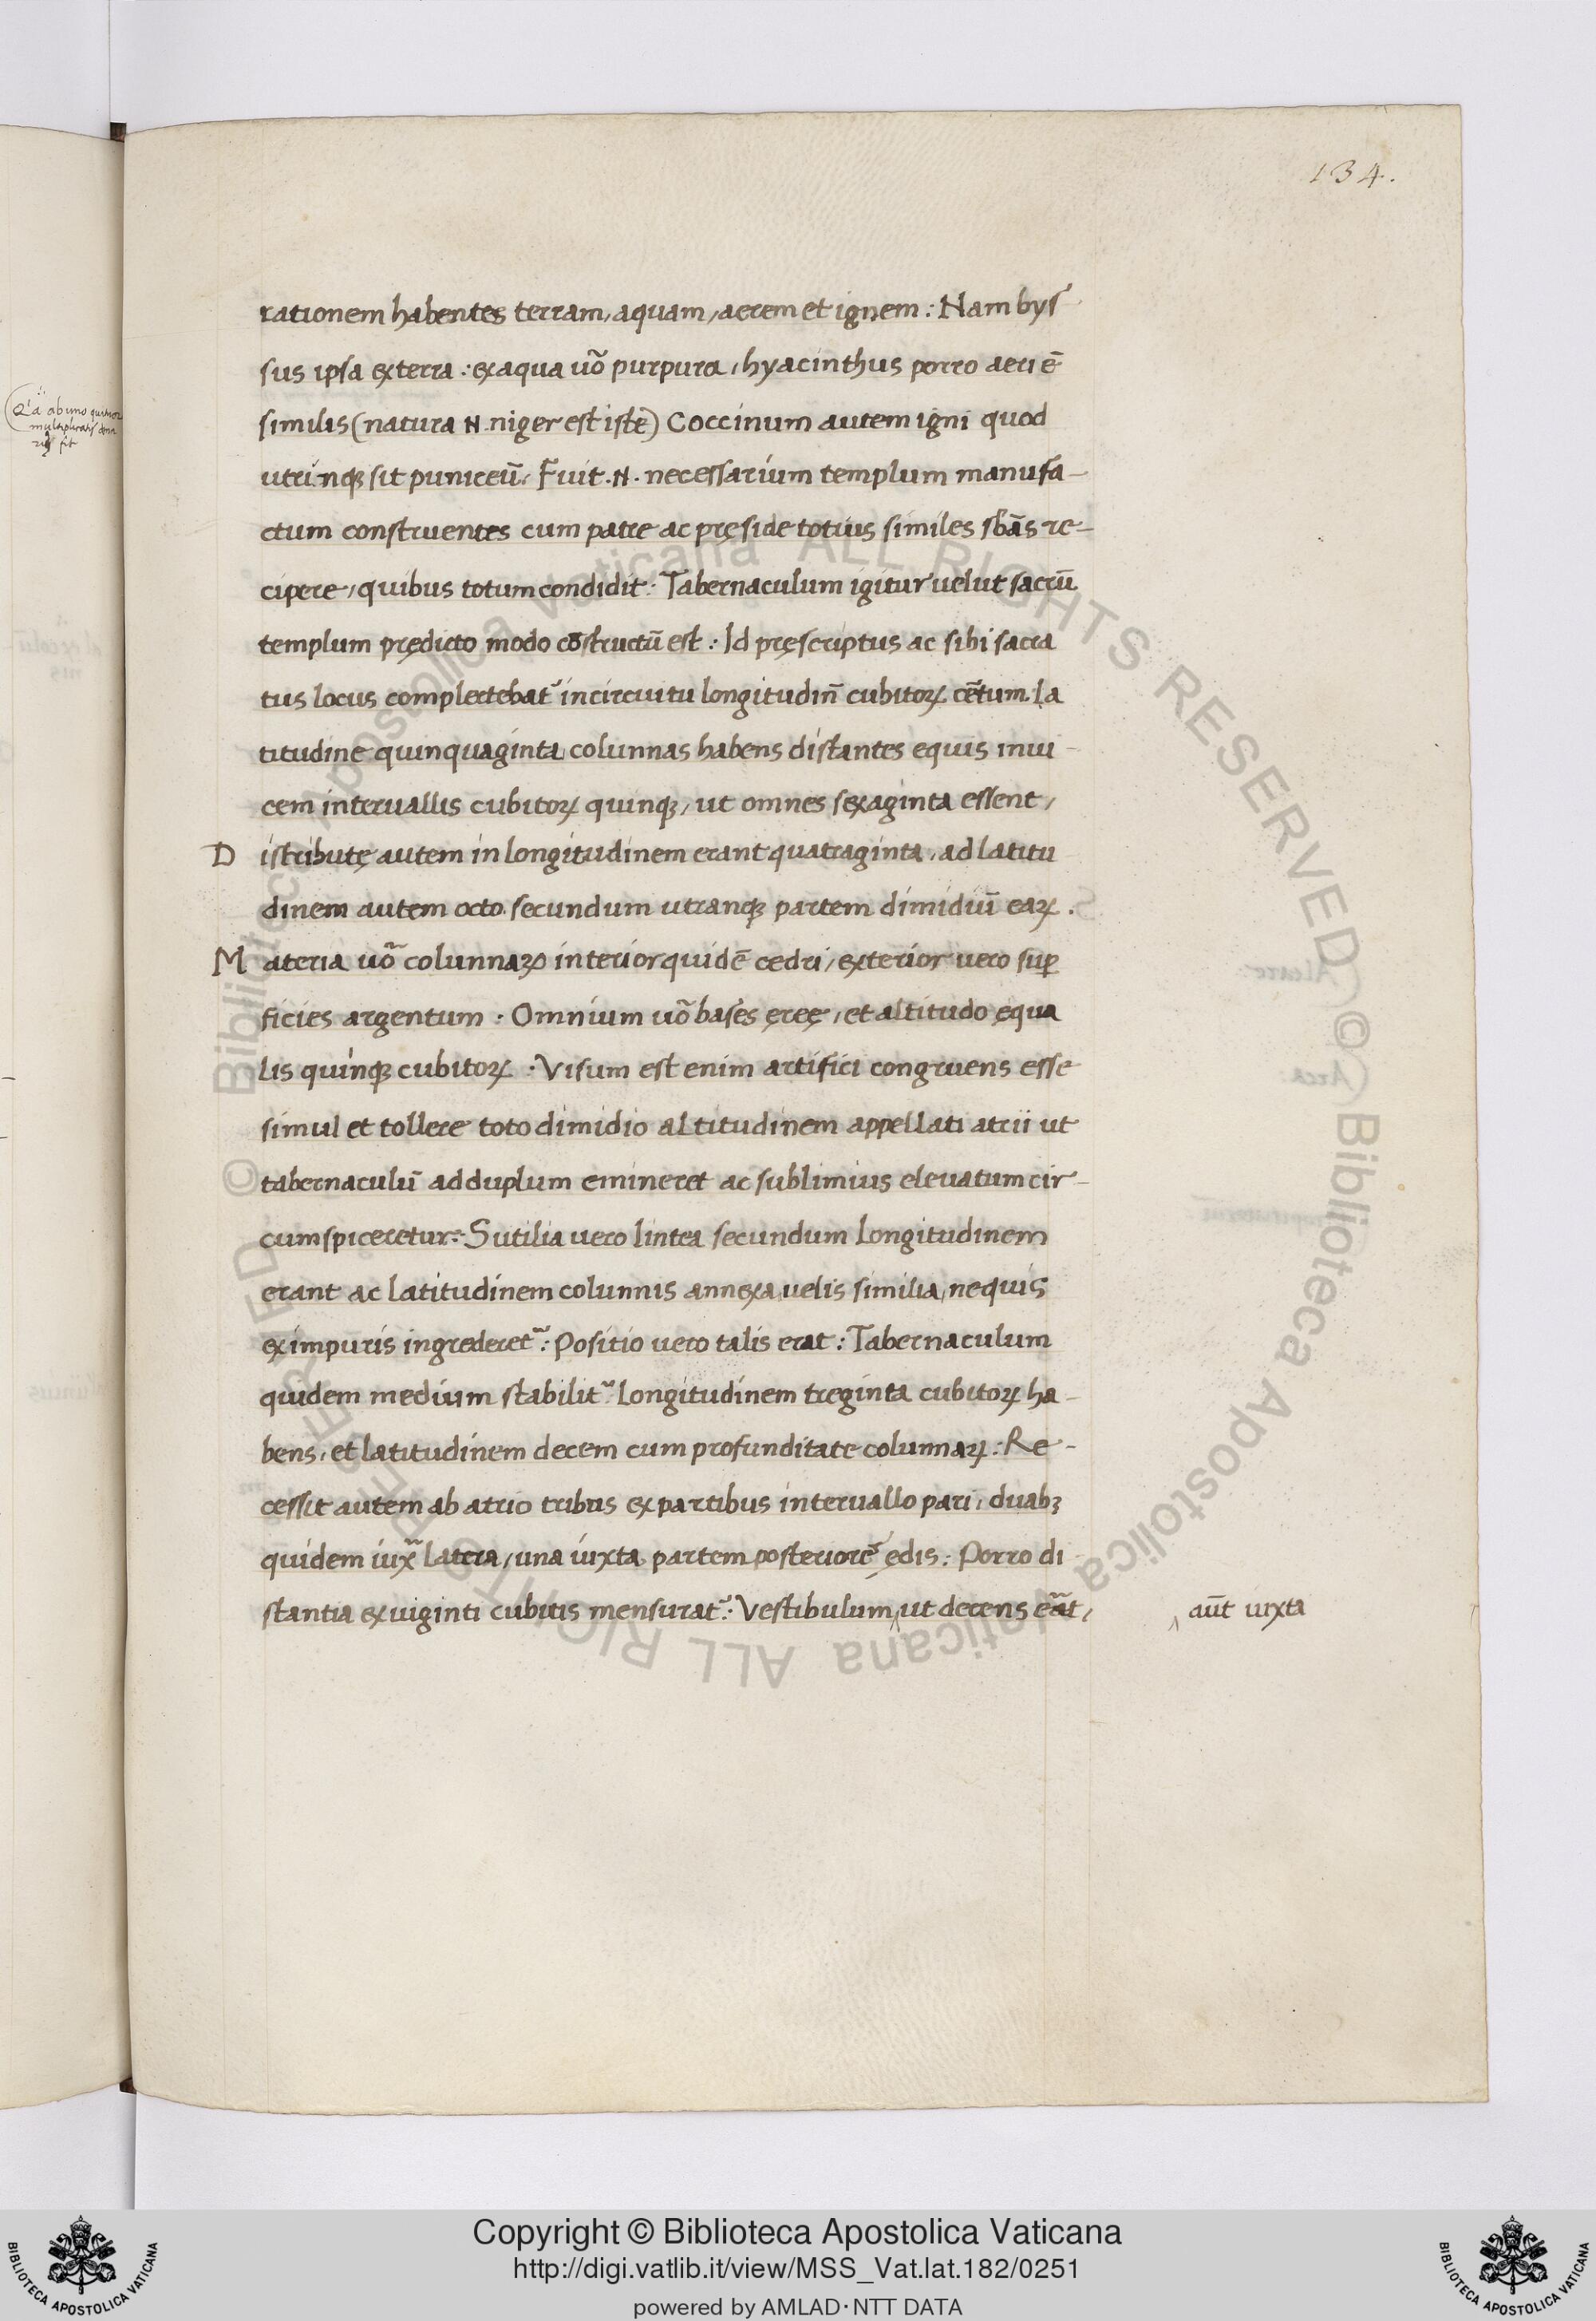 134.
rationem habentes terram, aquam, aerem et ignem: Nam bys
sus ipsa ex terra: ex aqua uõ purpura, hyacinthus porro aeri ē
similis (natura .N. niger est iste) Coccinum autem igni quod
utrinqꝫ sit puniceū. Fuit .N. necessarium templum manufa-
ctum construentes cum patre ac pręside totius similes sbãs re-
cipere, quibus totum condidit. Tabernaculum igitur uelut sacrū
templum prędicto modo cōstructū est: Id pręscriptus ac sibi sacra
tus locus complectebat᷑ in circuitu longitudin̄ cubitoꝝ cētum. la
titudine quinquaginta, columnas habens distantes equis inui-
cem interuallis cubitoꝝ quinqꝫ, ut omnes sexaginta essent,
Distributę autem in longitudinem erant quatraginta, ad latitu
dinem autem octo secundum utranqꝫ partem dimidiū eaꝝ.
Materia uõ colunnaꝝ interior quidē cedri, exterior uero suꝑ
ficies argentum. Omnium uõ bases ęreę, et altitudo ęqua
lis quinqꝫ cubitoꝝ. Visum est enim artifici congruens esse
simul et tollere toto dimidio altitudinem appellati atrii ut
tabernaculū ad duplum emineret ac sublimius eleuatum cir-
cumspiceretur: Sutilia uero lintea secundum longitudinem
erant ac latitudinem colunnis annexa, uelis similia, nequis
ex impuris ingrederet᷑: Positio uero talis erat: Tabernaculum
quidem medium stabilit᷑ longitudinem treginta cubitoꝝ ha-
bens, et latitudinem decem cum profunditate colunnaꝝ: Re-
cessit autem ab atrio tribus ex partibus interuallo pari, duabꝫ
quidem iux̃ latera, una iuxta partem posteriorē ędis: Porro di
stantia ex uiginti cubitis mensurat᷑: Vestibulum ‸ ut decens eãt,
‸ aūt iuxta
Copyright © Biblioteca Apostolica Vaticana
http://digi.vatlib.it/view/MSS_Vat.lat.182/0251
powered by AMLAD·NTT DATA
BIBLIOTECA APOSTOLICA VATICANA
BIBLIOTECA APOSTOLICA VATICANA
© Biblioteca Apostolica Vaticana ALL RIGHTS RESERVED © Biblioteca Apostolica Vaticana ALL RIGHTS RESERVED